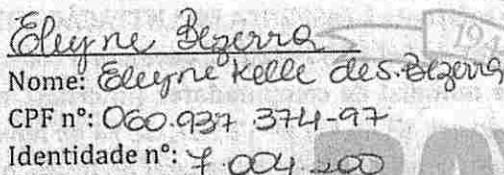 Eleyne Bezerra
Nome: Eleyne Kelle de S. Bezerra
CPF nº: 060.937 374-97
Identidade nº: 7.004.200